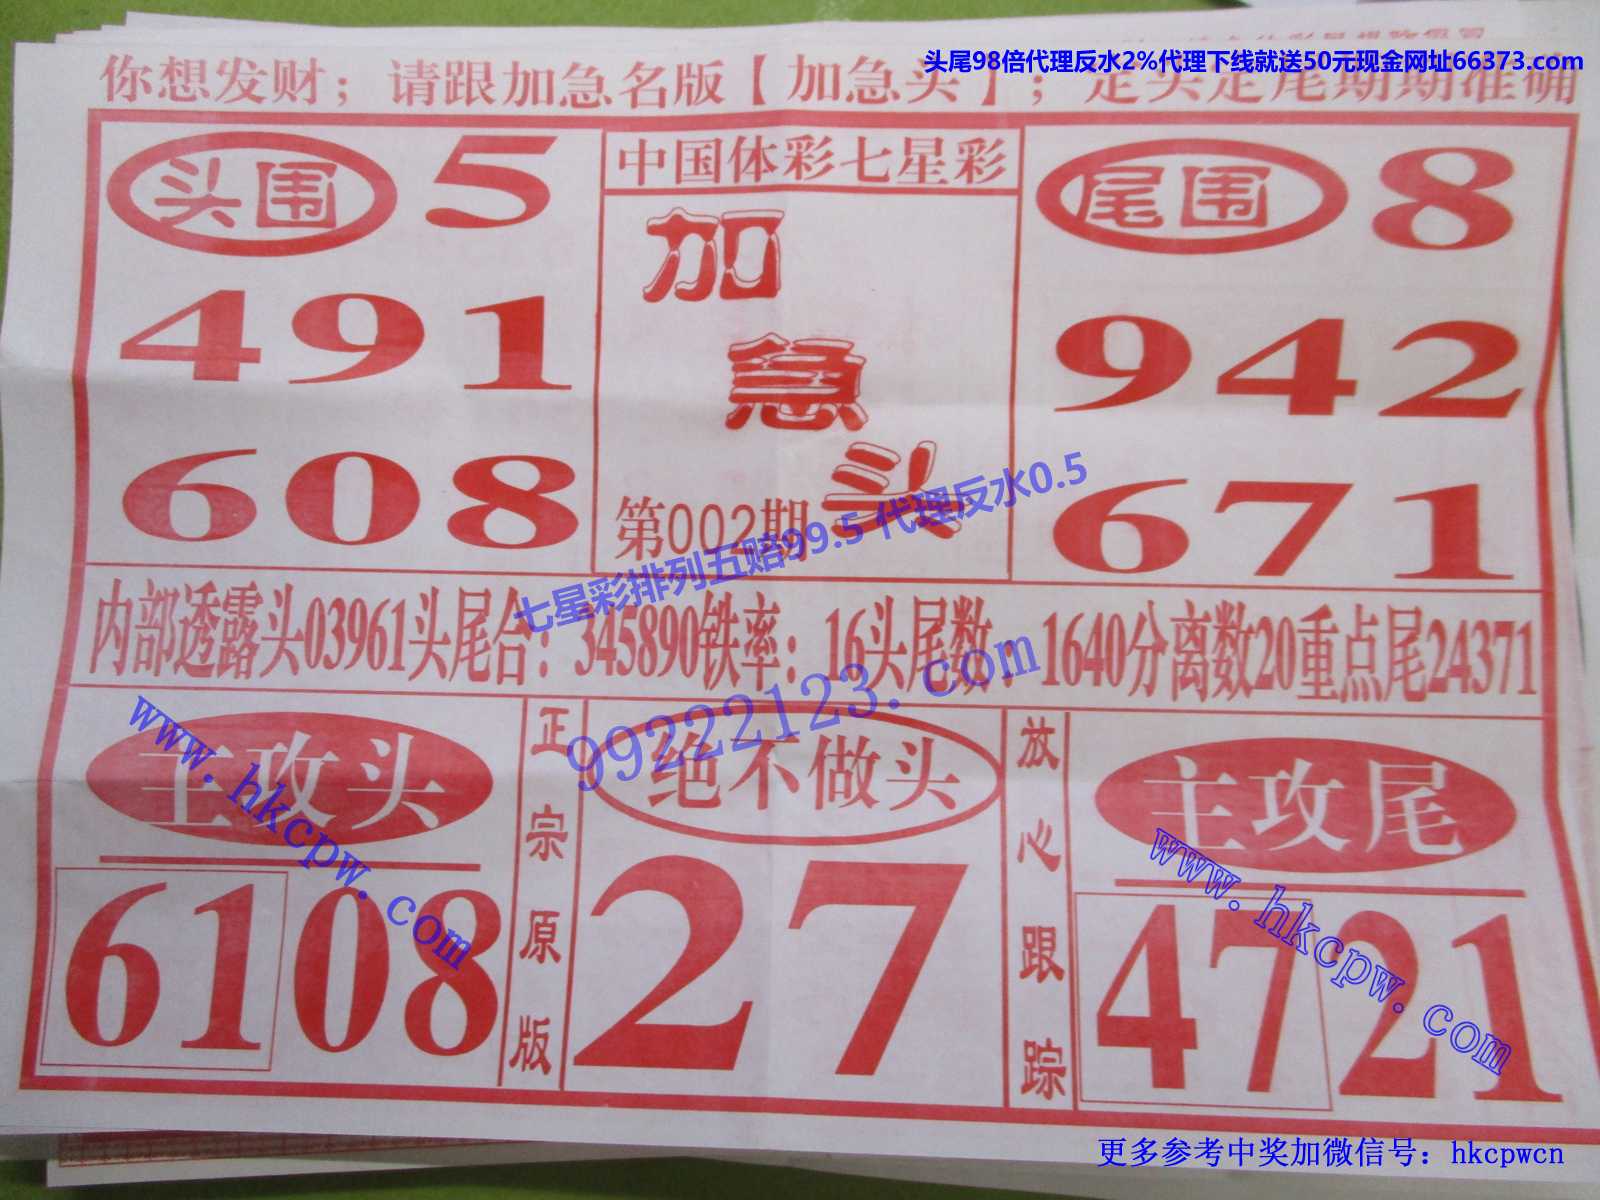 头尾98倍代理反水2%代理下线就送50元现金网址66373.com
你想发财；请跟加急名版【加急头】；定头定尾期期准确
头围 5
491
608
中国体彩七星彩
加
急
头
第002期
尾围 8
942
671
七星彩排列五赔99.5 代理反水0.5
内部透露头03961头尾合：345890铁率：16头尾数：1640分离数20重点尾24371
99222123.com
主攻头
6108
www.hkcpw.com
正宗原版
绝不做头
27
放心跟踪
主攻尾
4721
www.hkcpw.com
更多参考中奖加微信号：hkcpwcn